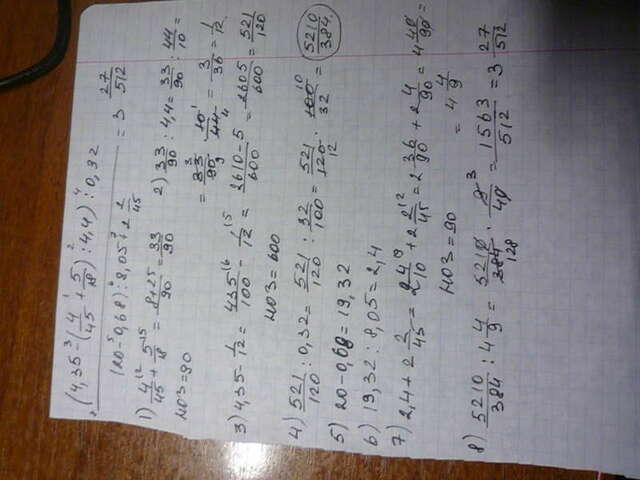 (4,35-(4/45+5/18):4,4):0,32
(20-0,68):8,05+2 2/45 = 3 27/512
1) 4/45+5/18 = 8+25/90 = 33/90
НОЗ=90
2) 33/90 : 4,4 = 33/90 : 44/10 =
= 33/90 · 10/44 = 3/36 = 1/12
3) 4,35-1/12 = 435/100 - 1/12 = 2610-5/600 = 2605/600 = 521/120
НОЗ=600
4) 521/120 : 0,32 = 521/120 : 32/100 = 521/120 · 100/32 = 5210/384
5) 20-0,68=19,32
6) 19,32 : 8,05=2,4
7) 2,4+2 2/45 = 2 4/10 + 2 2/45 = 2 36/90 + 2 4/90 = 4 40/90 =
= 4 4/9
НОЗ=90
8) 5210/384 : 4 4/9 = 5210/384 · 9/40 = 1563/512 = 3 27/512